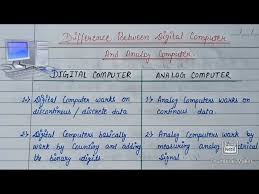 Difference Between Digital Computer
And Analog Computer
DIGITAL COMPUTER
ANALOG COMPUTER
1:→ Digital Computer works on
discontinuous / discrete data.
1:→ Analog Computers works on
continuous data.
2:→ Digital Computers basically
work by Counting and adding
the binary digits.
2:→ Analog Computers work by
measuring analog
signal